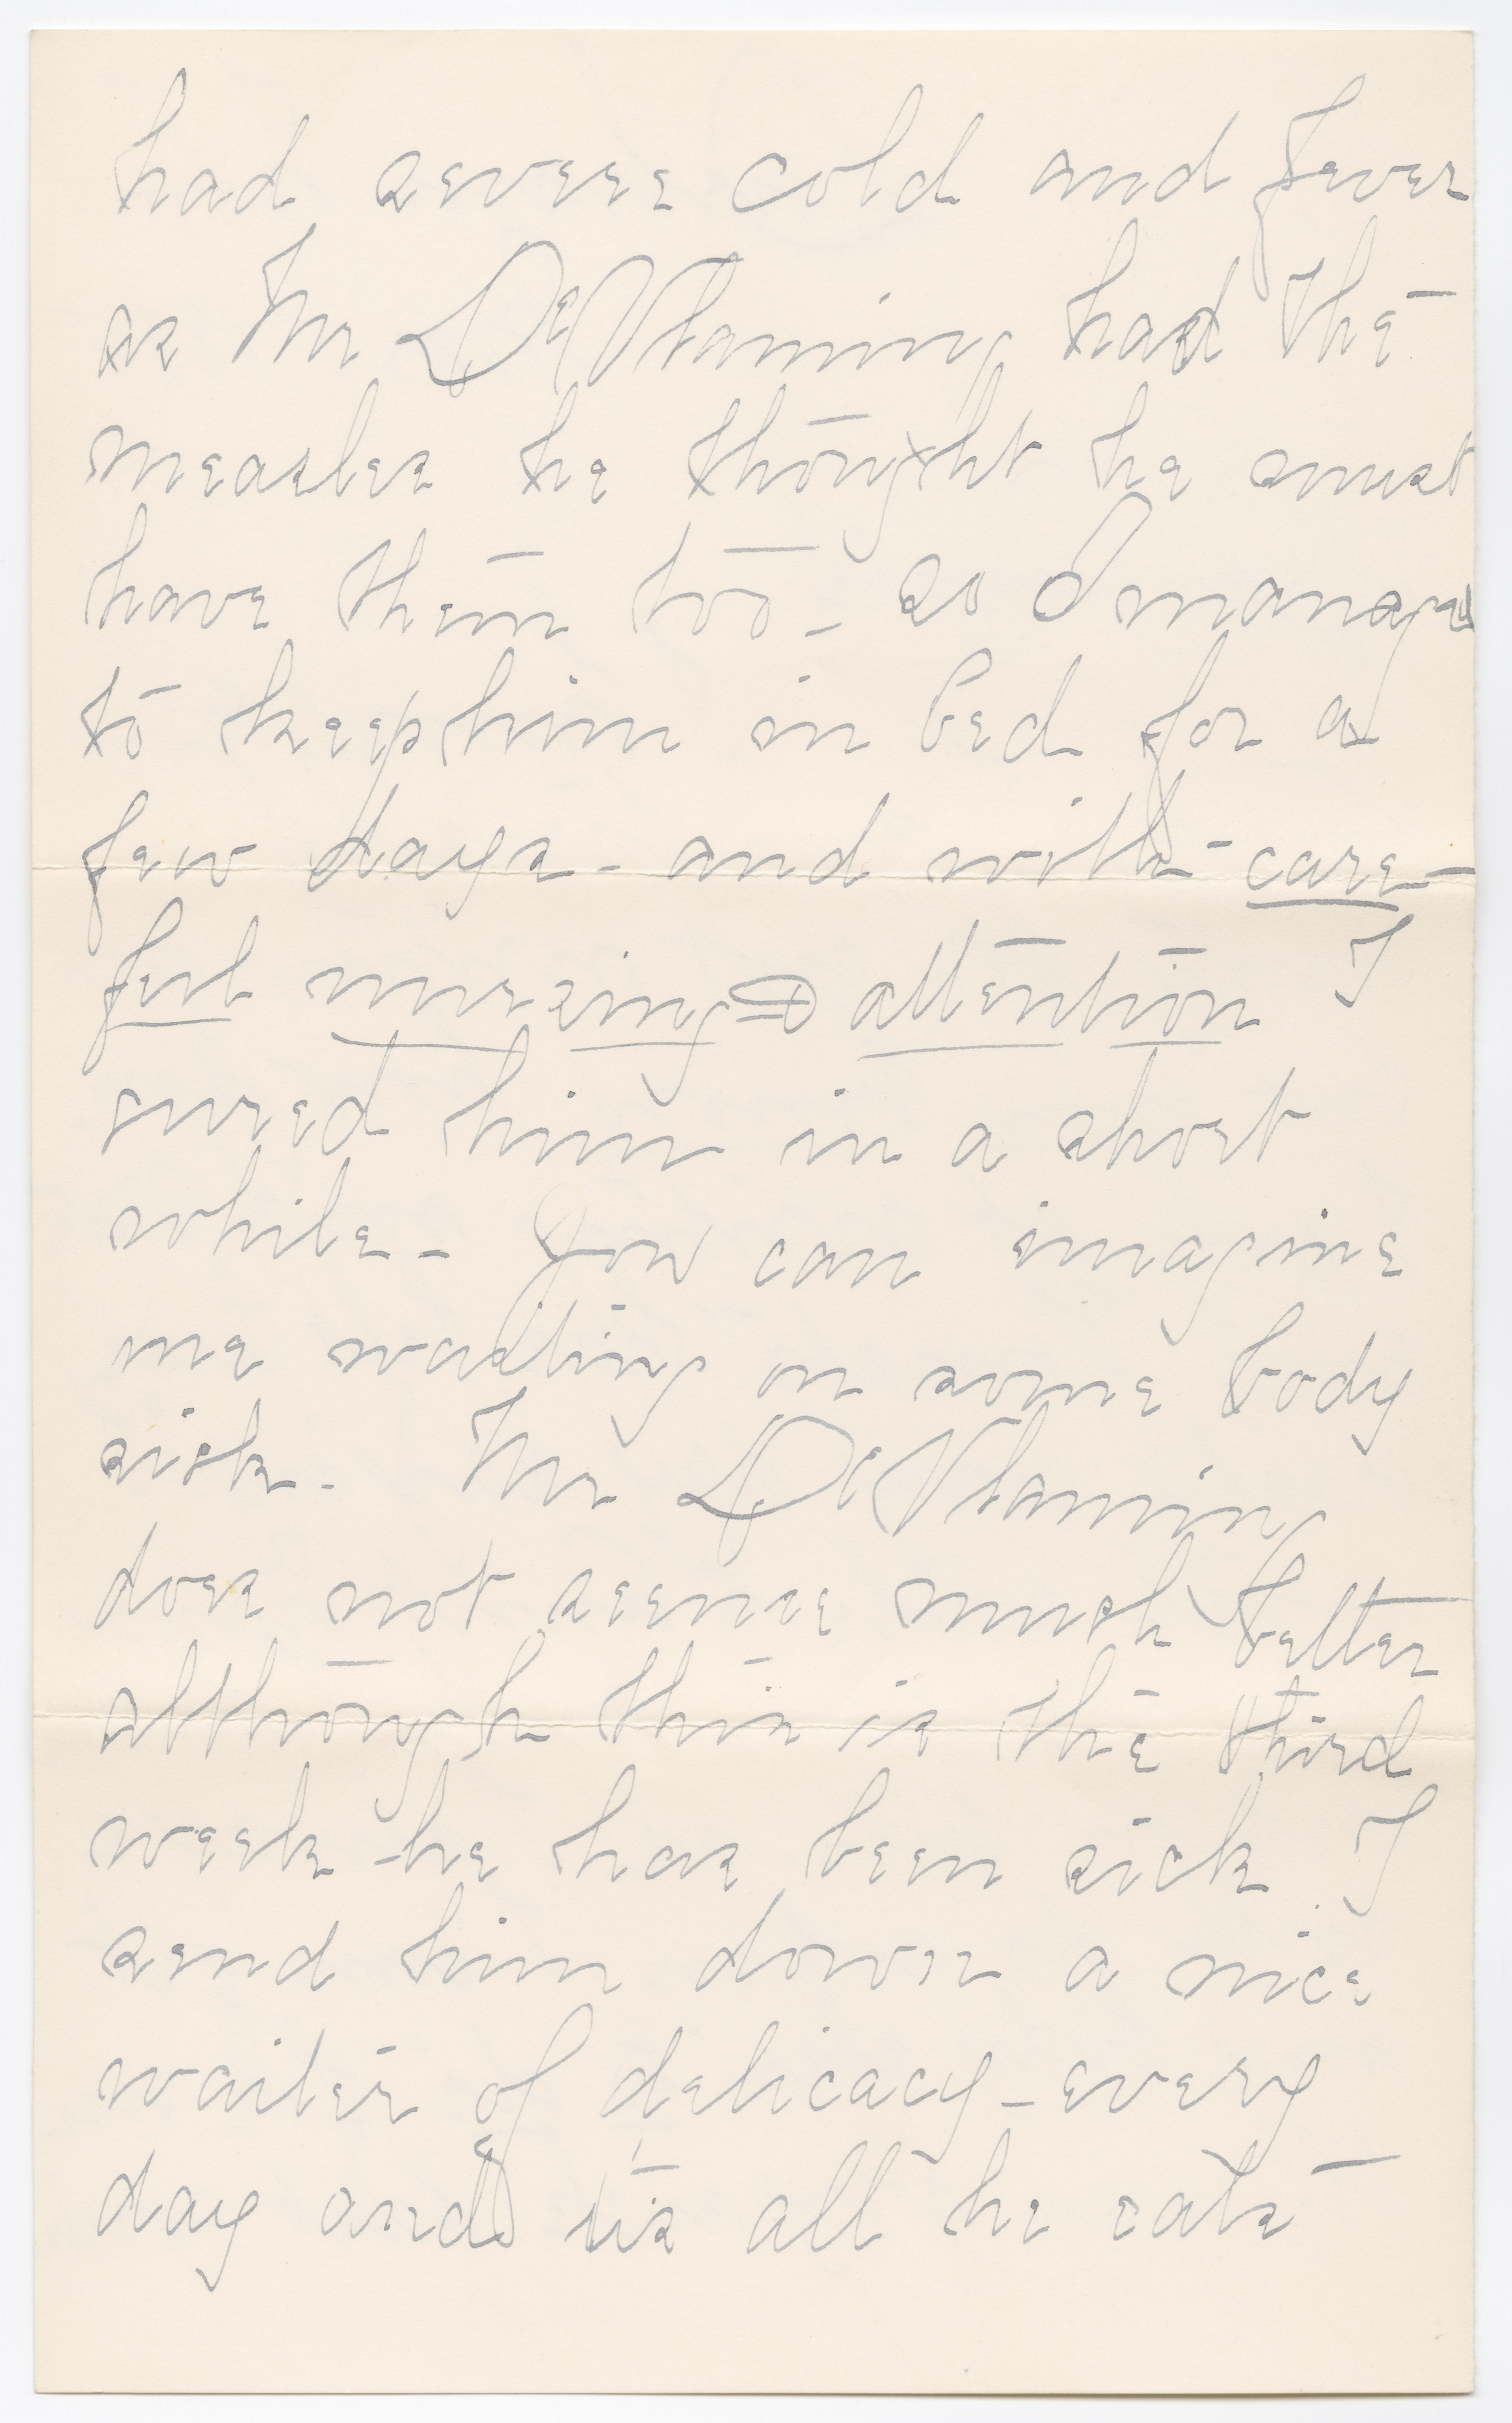 had severe cold and fever
as Mr DeVlaming had the
measles he thought he must
have them too - so I managed
to keep him in bed for a
few days - and with - care-
ful nursing & attention I
cured him in a short
while - You can imagine
me waiting on some body
sick - Mr DeVlaming
does not seeme much better
although this is the third
week he has been sick I
send him down a nice
waiter of delicacy - every
day and tis all he eats